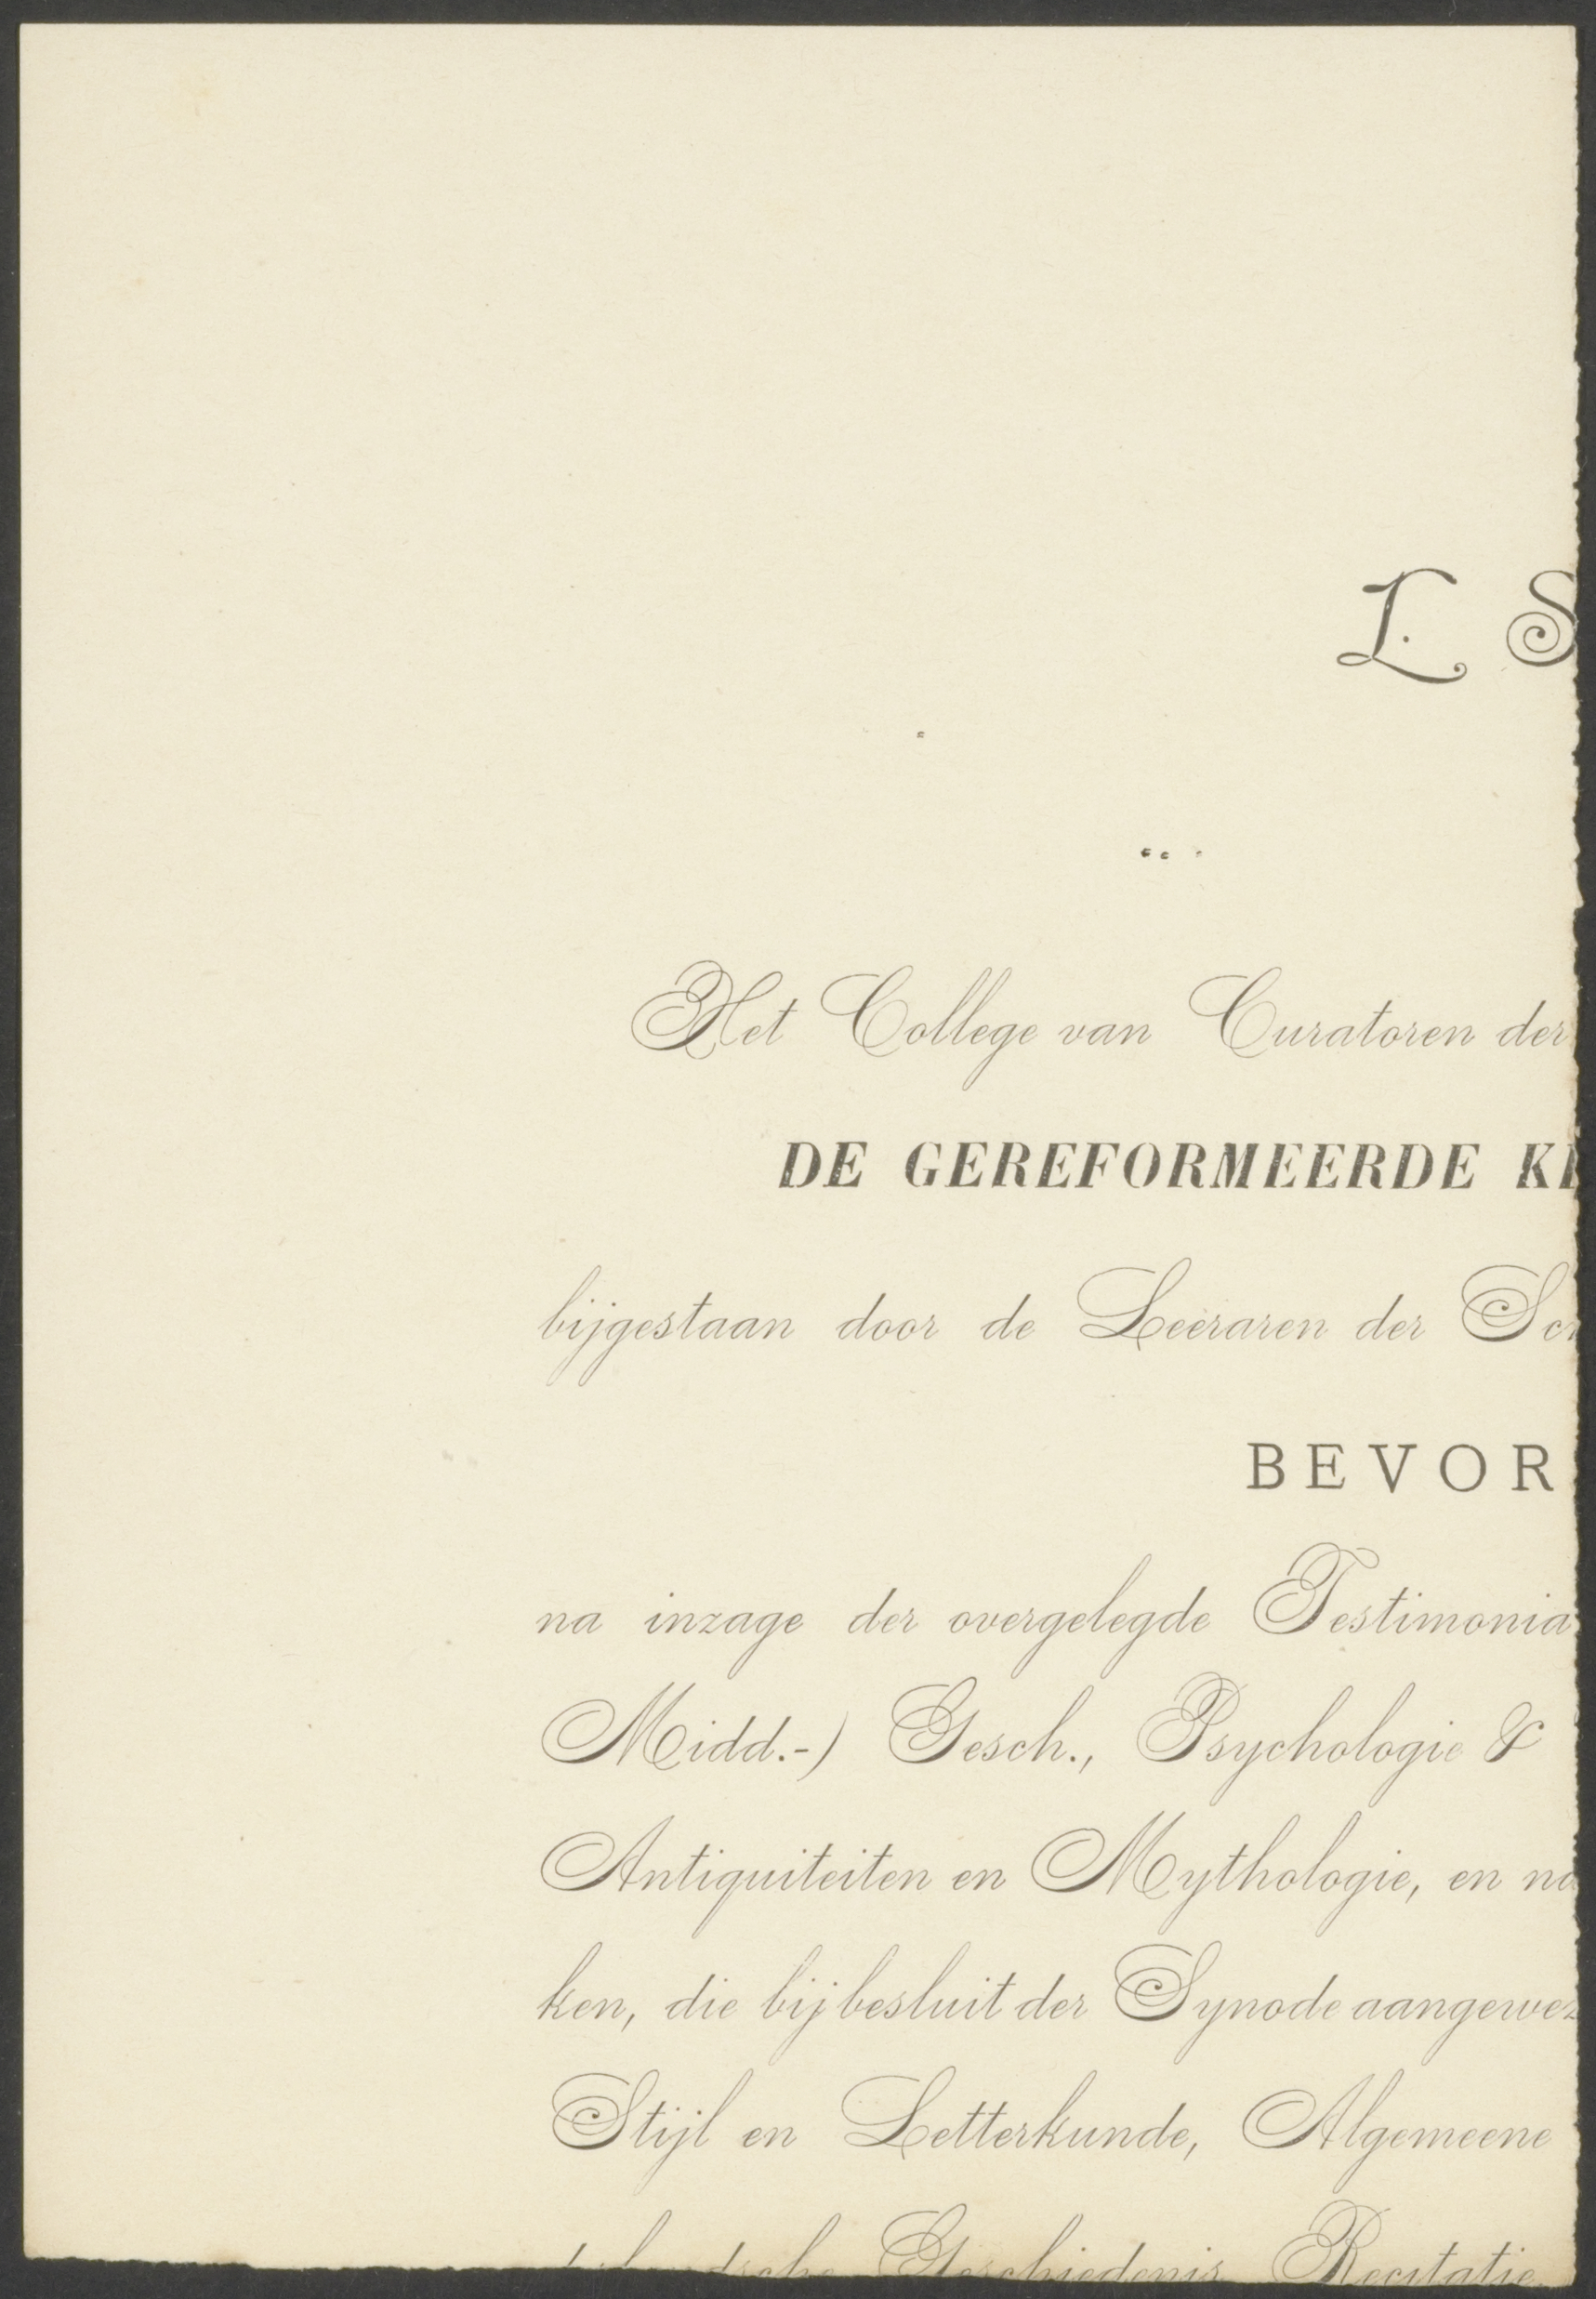 L. S
Het College van Curatoren der
DE GEREFORMEERDE K
bijgestaan door de Leeraren der Sc
BEVOR
na inzage der overgelegde Testimonia
Midd.-) Gesch., Psychologie &
Antiquiteiten en Mythologie, en na
ken, die bij besluit der Synode aangewez
Stijl en Letterkunde, Algemeene
Geschiedenis Recitatie